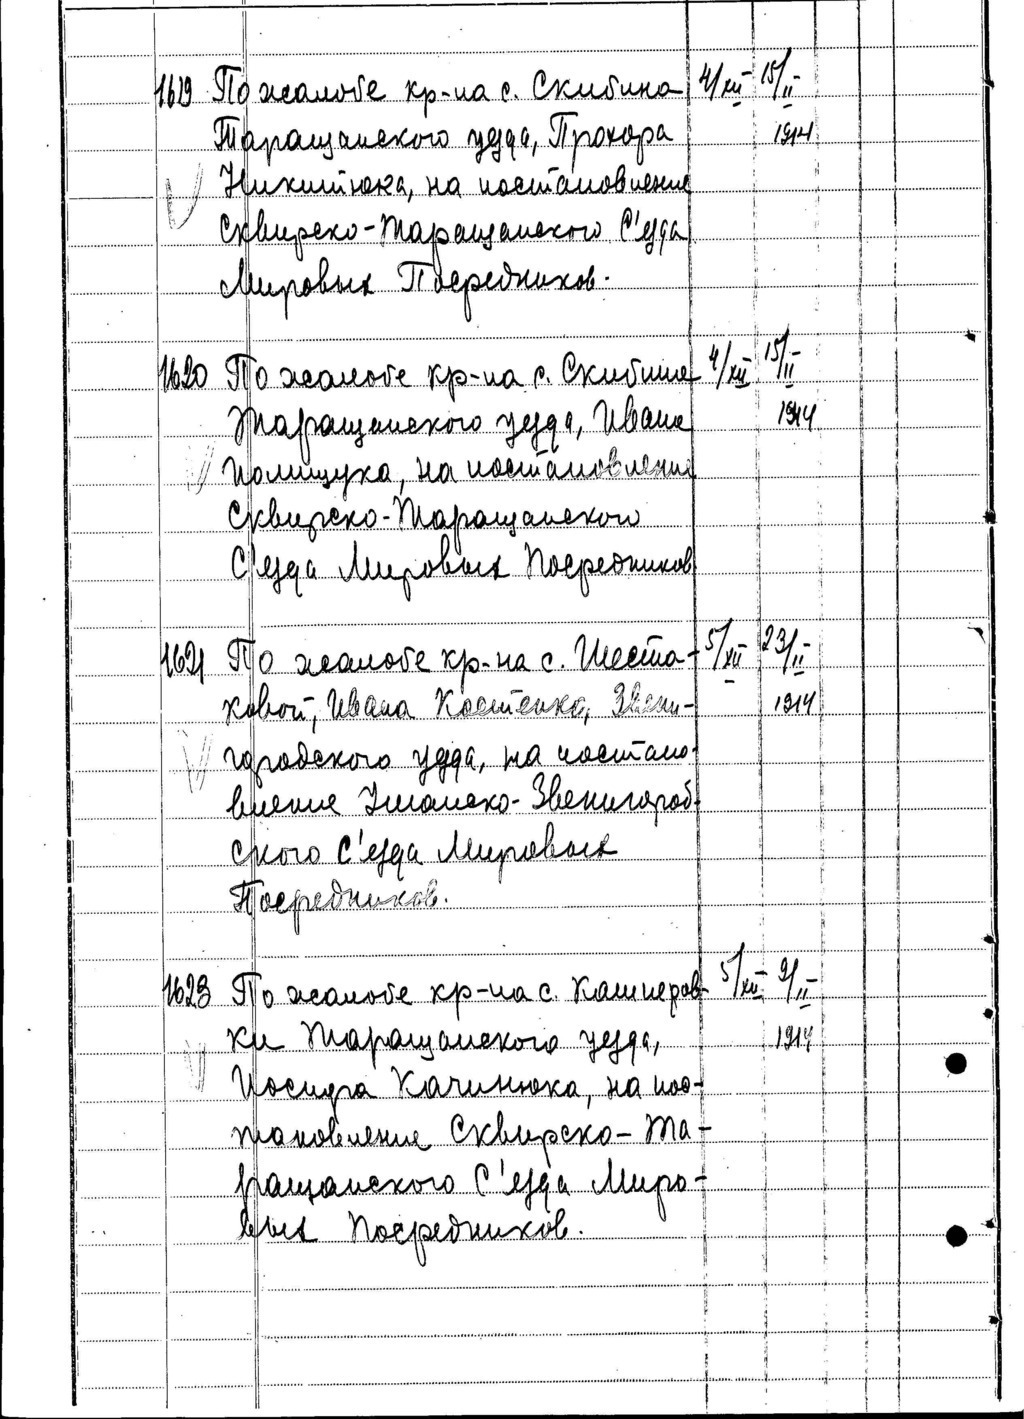 1619 По жалобе кр-на с. Скибина 4/XII 15/II
Таращанского уезда, Прохора 1914
Никитюка, на постановление
Сквирско-Таращанского С'езда
Мировых Посредников.
1620 По жалобе кр-на с. Скибина 4/XII 15/II
Таращанского уезда, Ивана 1914
Полищука, на постановление
Сквирско-Таращанского
С'езда Мировых Посредников
1621 По жалобе кр-на с. Шеста- 5/XII 23/II
ковой, Ивана Костенко, Звени- 1914
городского уезда, на постано-
вление Уманско-Звенигород-
ского С'езда Мировых
Посредников.
1623 По жалобе кр-на с. Кашперов- 5/XII 9/II
ки Таращанского уезда, 1914
Иосифа Качинюка, на пос-
тановление Сквирско-Та-
ращанского С'езда Миро-
вых Посредников.